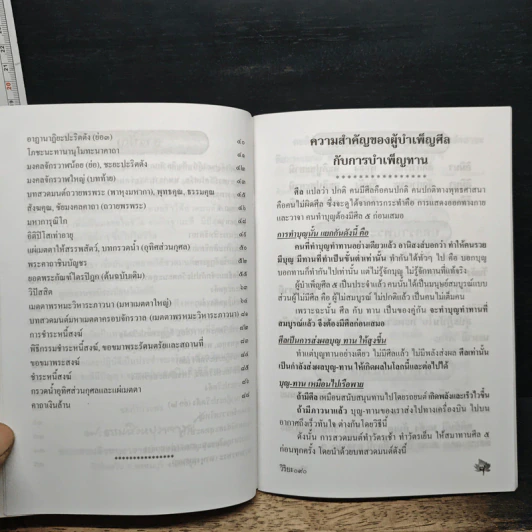 อาฏานาฏิยะปะริตตัง (ย่อ๓)
โภชะนะทานานุโมทะนาคาถา
มงคลจักรวาฬน้อย (ย่อ), ชะยะปะริตตัง
มงคลจักรวาฬใหญ่ (บทท้าย)
บทสวดมนต์ถวายพรพระ (พาหุงมหากา), พุทธคุณ, ธรรมคุณ
สังฆคุณ, ชัยมงคลคาถา (ถวายพรพระ)
มหาการุณิโก
อิติปิโสเท่าอายุ
แผ่เมตตาให้สรรพสัตว์, บทกรวดน้ำ (อุทิศส่วนกุศล)
พระคาถาชินบัญชร
ยอดพระกัณฑ์ไตรปิฎก (ต้นฉบับเดิม)
วิปัสสิต
เมตตาพรหมะวิหาระภาวนา (มหาเมตตาใหญ่)
บทสวดมนต์มหาเมตตาครอบจักรวาล (เมตตาพรหมะวิหาระภาวนา)
การชำระหนี้สงฆ์
พิธีกรรมชำระหนี้สงฆ์, ขอขมาพระรัตนตรัยและสถานที่
ขอขมาพระสงฆ์
ชำระหนี้สงฆ์
กรวดน้ำอุทิศส่วนกุศลและแผ่เมตตา
คาถาเงินล้าน
ความสำคัญของผู้บำเพ็ญศีล
กับการบำเพ็ญทาน
ศีล แปลว่า ปกติ คนมีศีลคือคนปกติ คนปกติทางพุทธศาสนา
คือคนไม่ผิดศีล ซึ่งจะดูได้จากการกระทำคือ การแสดงออกทางกาย
และวาจา คนทำบุญต้องมีศีล ๕ ก่อนเสมอ
การทำบุญนั้น แยกกันดังนี้ คือ
คนที่ทำบุญทำทานอย่างเดียวแล้ว อานิสงส์บอกว่า ทำให้คนรวย
มีบุญ มีทานที่ทำเป็นขั้นต่ำเท่านั้น
ผู้บำเพ็ญศีล ๕ เป็นประจำแล้ว คนนั้นได้เป็นมนุษย์สมบูรณ์แบบ
ส่วนผู้ไม่มีศีล คือ ผู้ไม่สมบูรณ์ ไม่ปกติแล้ว เป็นคนไม่เต็มคน
เพราะฉะนั้น ศีล กับ ทาน เป็นของคู่กัน จะทำบุญทำทานที่
สมบูรณ์แล้ว จึงต้องมีศีลก่อนเสมอ
ศีลเป็นการส่งผลบุญ ทาน ให้สูงขึ้น
ทำแต่บุญทานอย่างเดียว ไม่มีศีลแล้ว ไม่มีพลังส่งผล ศีลเท่านั้น
เป็นกำลังส่งผลบุญ-ทาน ให้เกิดผลในโลกนี้และต่อไปได้
บุญ-ทาน เหมือนไปเรือพาย
ถ้ามีศีล เหมือนสนับสนุนทานไปโดยรถยนต์ เกิดพลังและเร็วไวขึ้น
ถ้ามีภาวนาแล้ว บุญ-ทานของเราส่งไปทางเครื่องบิน ไปบน
อากาศถึงเร็วทันใจ ต่างกันโดยวิธีนี้
ดังนั้น การสวดมนต์ทำวัตรเช้า ทำวัตรเย็น ให้สมาทานศีล ๕
ก่อนทุกครั้ง โดยนำด้วยบทสวดมนต์ดังนี้